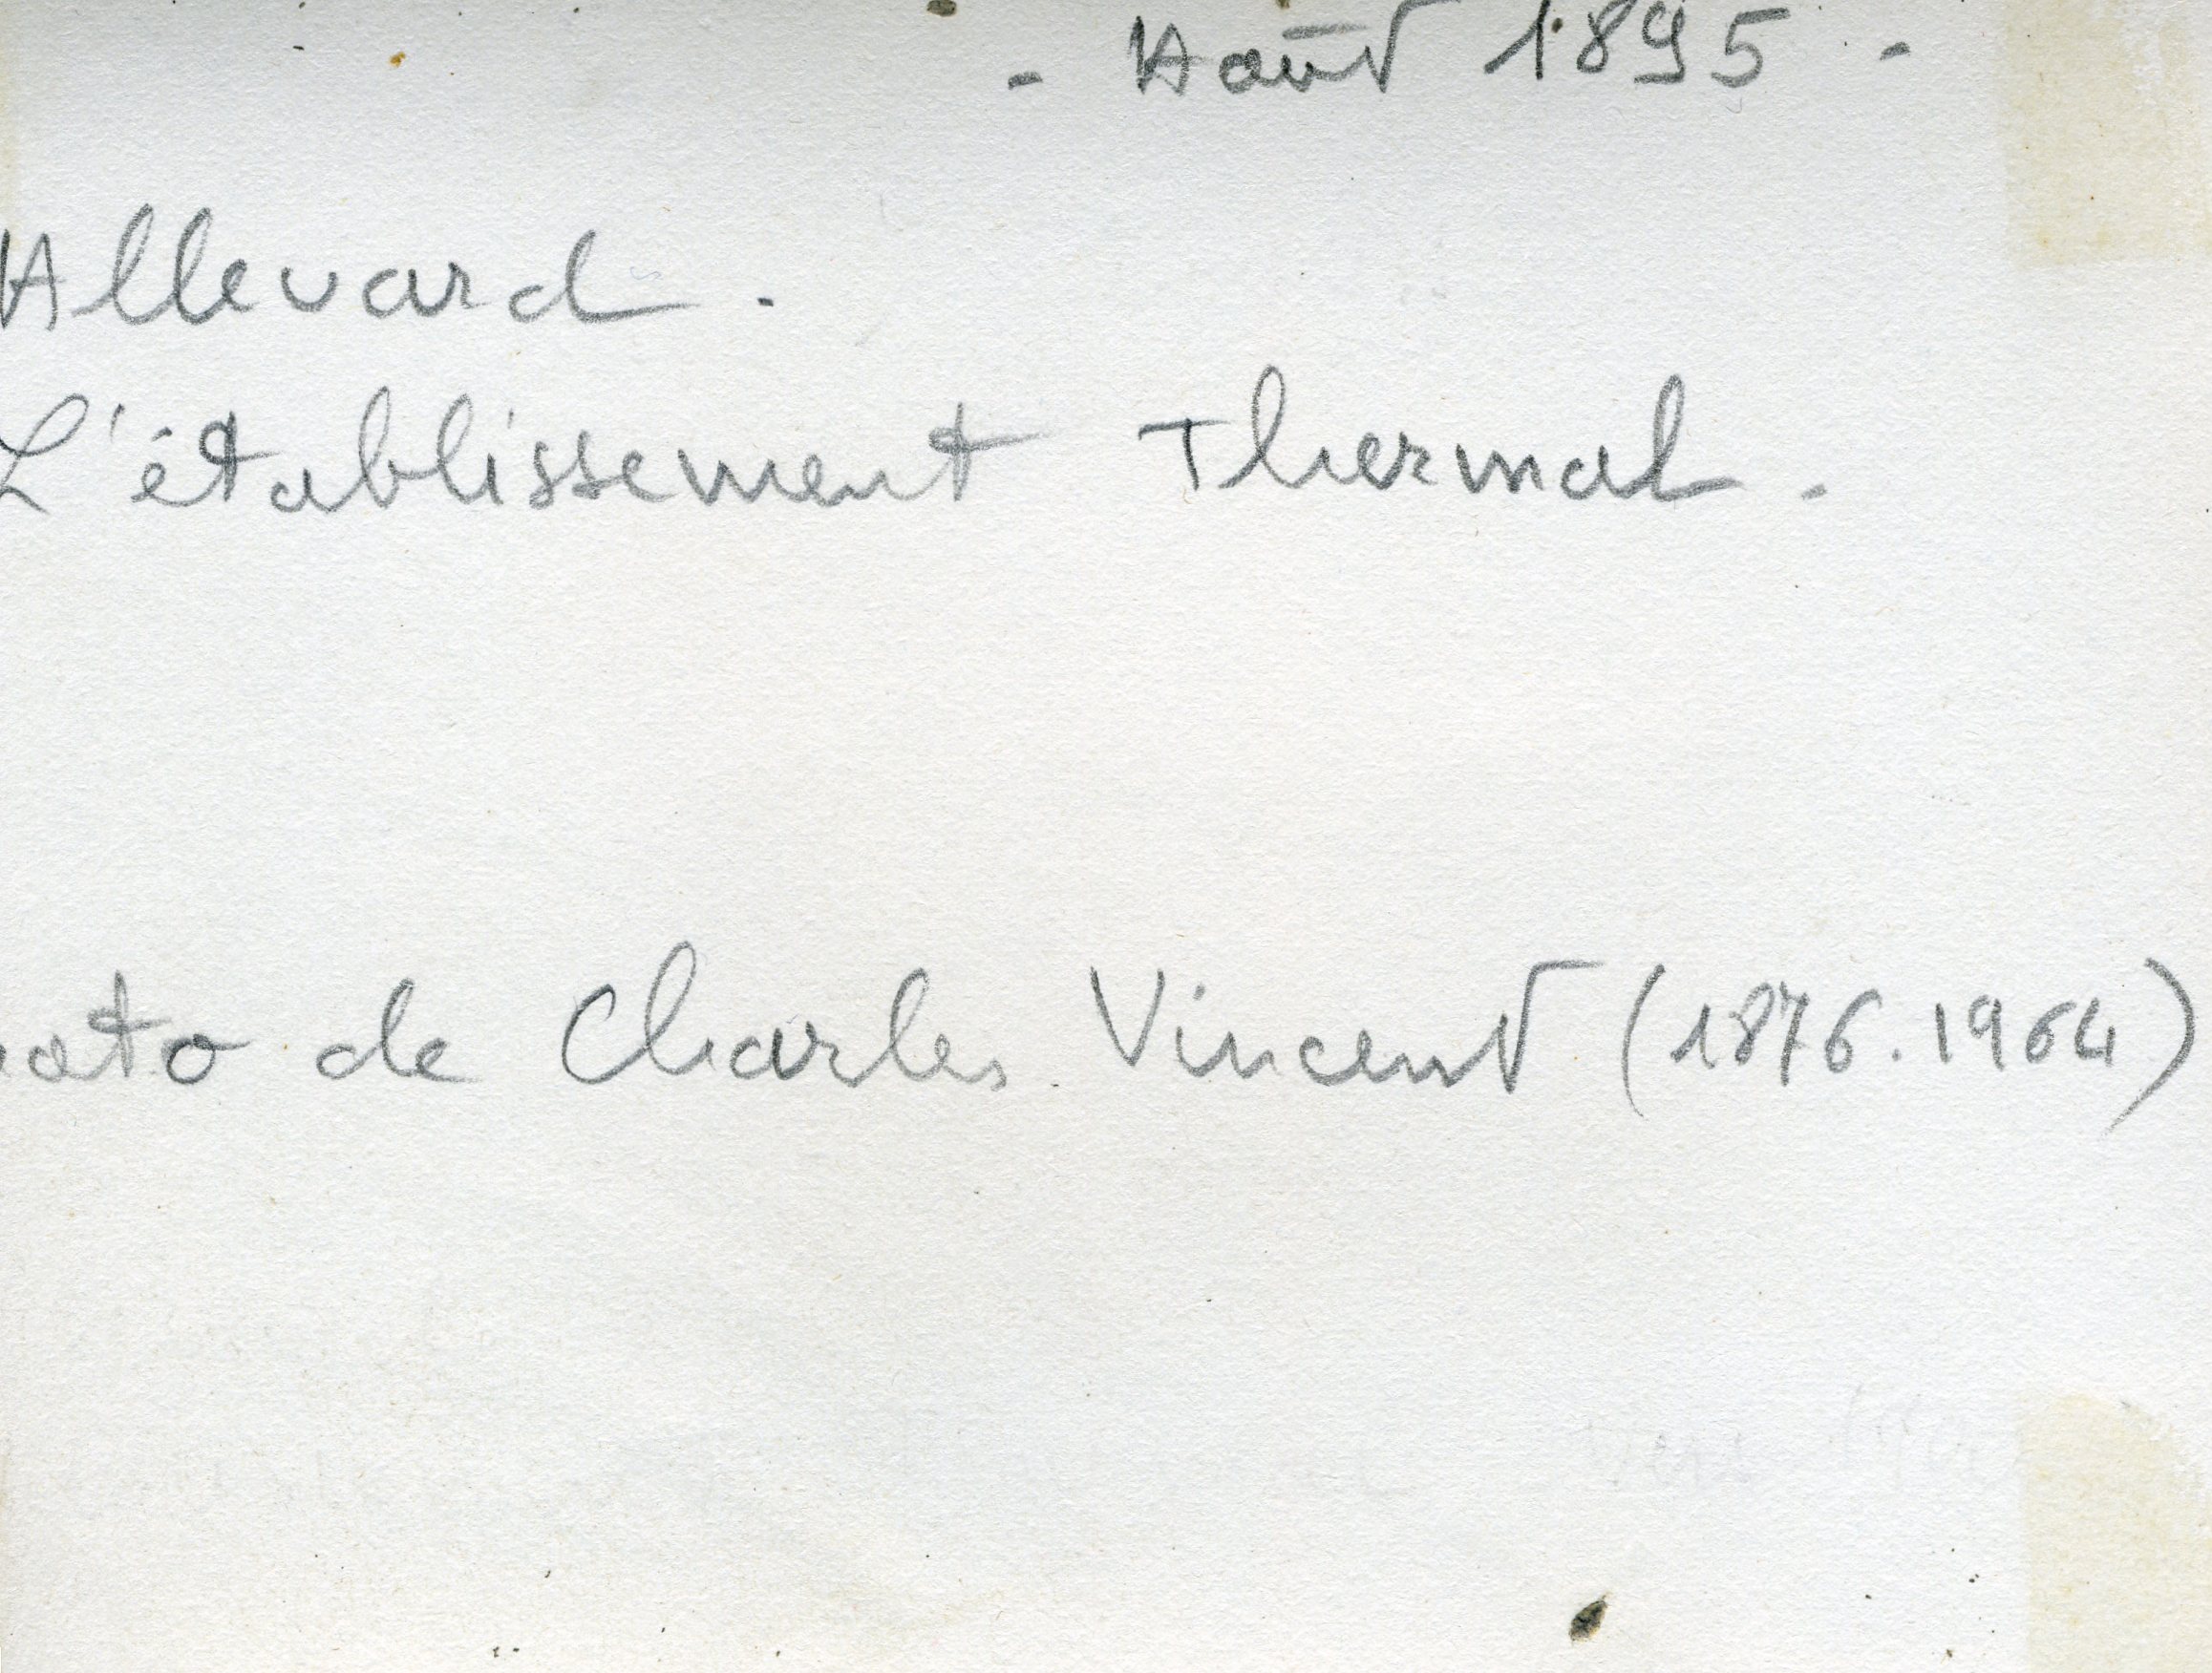 - Août 1895 -
Allevard.
L'établissement Thermal.
oto de Charles Vincent (1876.1964)